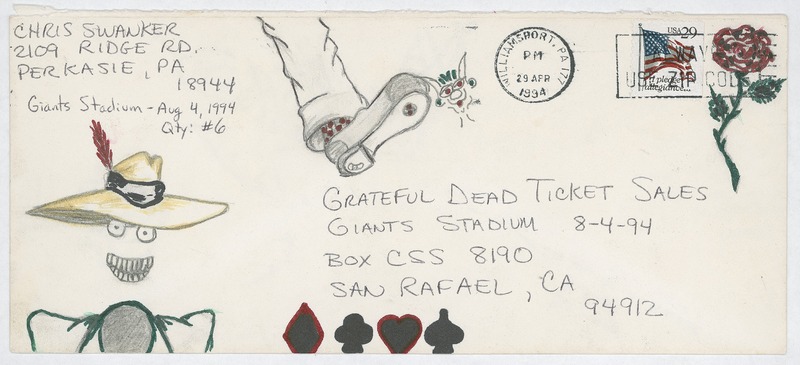 CHRIS SWANKER
2109 RIDGE RD.
PERKASIE, PA
18944
Giants Stadium - Aug 4, 1994
Qty: #6
WILLIAMSPORT, PA 177
PM
29 APR
1994
USA 29
I pledge
allegiance...
US ZIP CODE
GRATEFUL DEAD TICKET SALES
GIANTS STADIUM 8-4-94
BOX CSS 8190
SAN RAFAEL, CA
94912